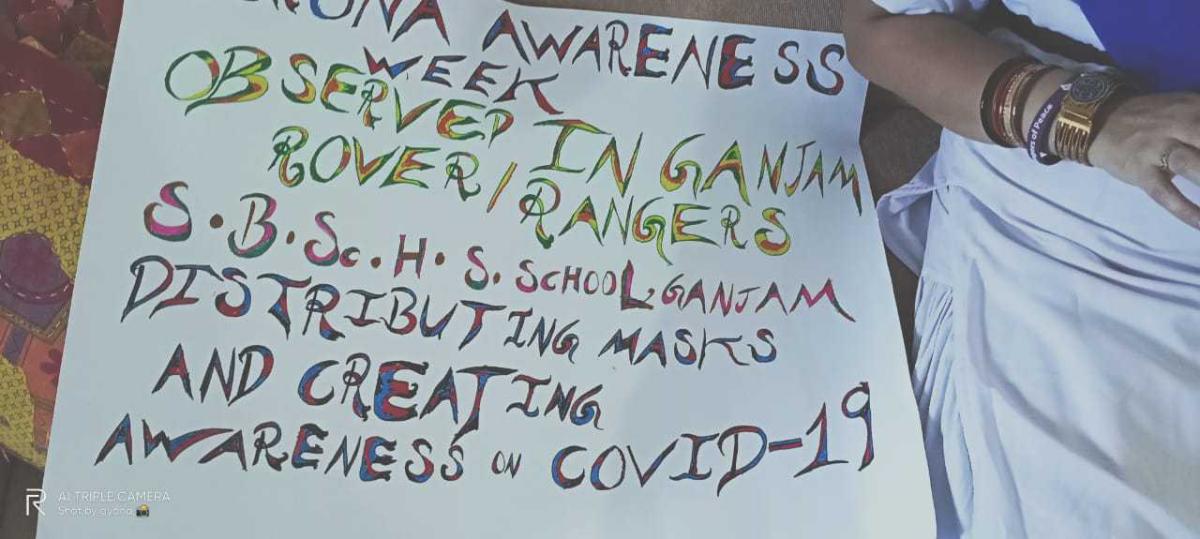 RONA AWARENESS
WEEK
OBSERVED IN GANJAM
ROVER/RANGERS
S.B.Sc.H.S. SCHOOL, GANJAM
DISTRIBUTING MASKS
AND CREATING
AWARENESS ON COVID-19
of Peace
AI TRIPLE CAMERA
Shot by gyana